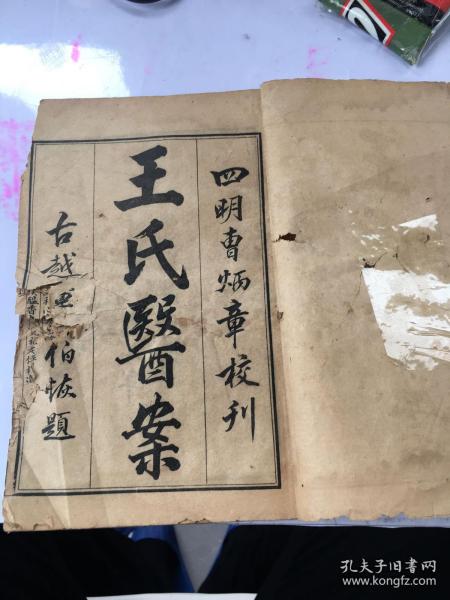 四明曹炳章校刊
王氏醫案
古越
伯恢題
孔夫子旧书网
www.kongfz.com